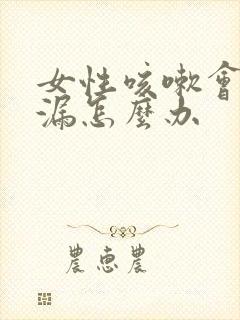 女性咳嗽會
漏怎麼办
農惠農